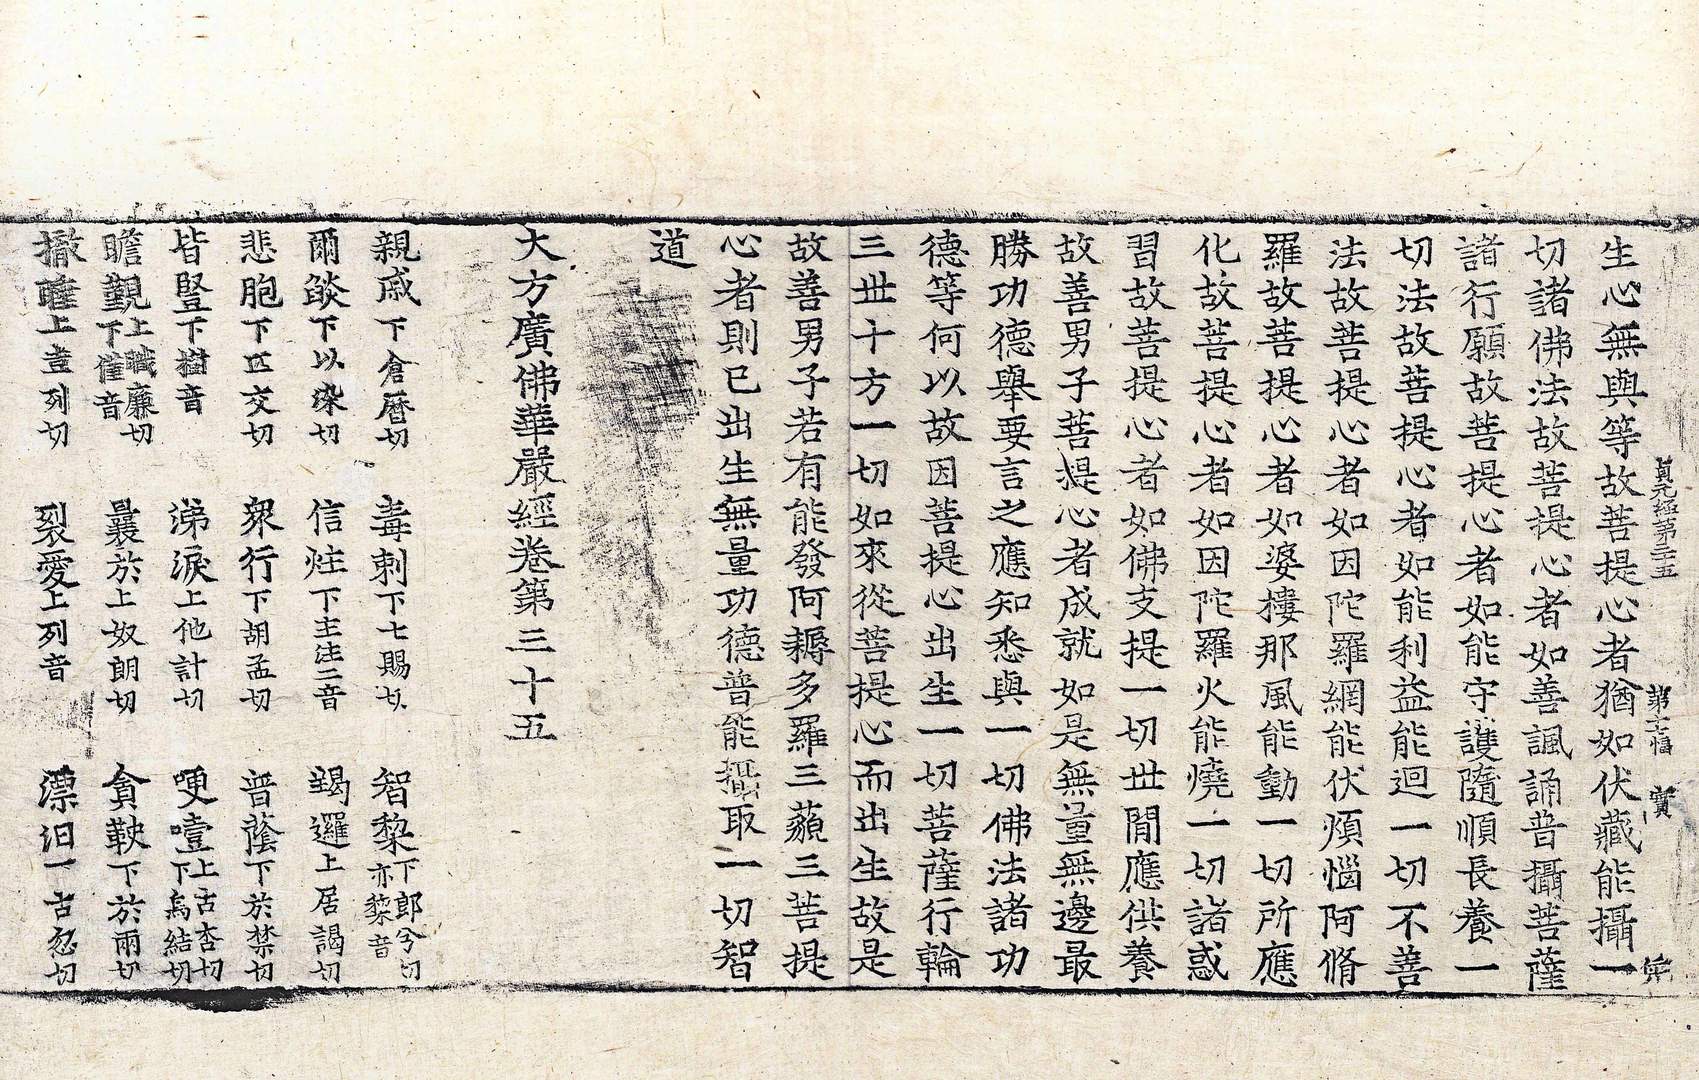 貞元經第三十五 第十七幅 寶
生心無與等故菩提心者猶如伏藏能攝一
切諸佛法故菩提心者如善諷誦普攝菩薩
諸行願故菩提心者如能守護隨順長養一
切法故菩提心者如能利益能迴一切不善
法故菩提心者如因陀羅網能伏煩惱阿脩
羅故菩提心者如婆摟那風能動一切所應
化故菩提心者如因陀羅火能燒一切諸惑
習故菩提心者如佛支提一切世間應供養
故善男子菩提心者成就如是無量無邊最
勝功德舉要言之應知悉與一切佛法諸功
德等何以故因菩提心出生一切菩薩行輪
三世十方一切如來從菩提心而出生故是
故善男子若有能發阿耨多羅三藐三菩提
心者則已出生無量功德普能攝取一切智
道
大方廣佛華嚴經卷第三十五
親戚下倉曆切 毒刺下七賜切 智黎下郎兮切亦藜音
爾燄下以染切 信炷下主注二音 竭邏上居謁切
悲胞下匹交切 眾行下胡孟切 普蔭下於禁切
皆豎下樹音 涕淚上他計切 哽噎上古杏切下烏結切
瞻覲上職廉切下僅音 曩於上奴朗切 貪鞅下於兩切
撤睡上直列切 裂愛上列音 漂汩下古忽切